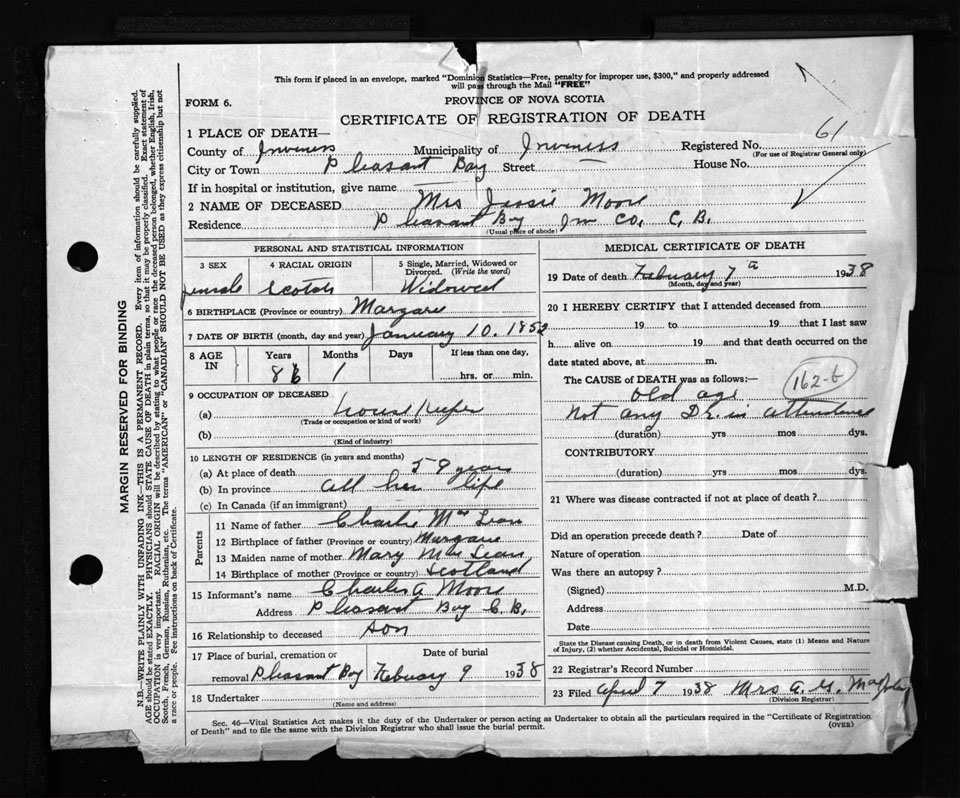 This form if placed in an envelope, marked "Dominion Statistics—Free, penalty for improper use, $300," and properly addressed
will pass through the Mail "FREE"
FORM 6.
PROVINCE OF NOVA SCOTIA
CERTIFICATE OF REGISTRATION OF DEATH
61
1 PLACE OF DEATH—
County of Inverness Municipality of Inverness Registered No.
(For use of Registrar General only)
City or Town Pleasant Bay Street — House No.
If in hospital or institution, give name
2 NAME OF DECEASED Mrs Jessie Moore
Residence Pleasant Bay Inv Co, C. B.
(Usual place of abode)
PERSONAL AND STATISTICAL INFORMATION
3 SEX
female
4 RACIAL ORIGIN
Scotch
5 Single, Married, Widowed or
Divorced. (Write the word)
Widowed
6 BIRTHPLACE (Province or country) Margaree
7 DATE OF BIRTH (month, day and year) January 10. 1852
8 AGE IN
Years Months Days If less than one day,
86 1 hrs. or min.
9 OCCUPATION OF DECEASED
(a) House Keeper
(Trade or occupation or kind of work)
(b)
(Kind of industry)
10 LENGTH OF RESIDENCE (in years and months)
(a) At place of death 59 years
(b) In province all her life
(c) In Canada (if an immigrant)
Parents
11 Name of father Charlie McLean
12 Birthplace of father (Province or country) Margaree
13 Maiden name of mother Mary McLean
14 Birthplace of mother (Province or country) Scotland
15 Informant's name Charles A Moore
Address Pleasant Bay C. B.
16 Relationship to deceased son
17 Place of burial, cremation or Date of burial
removal Pleasant Bay Febuary 9 1938
18 Undertaker
(Name and address)
MEDICAL CERTIFICATE OF DEATH
19 Date of death Febuary 7 1938
(Month, day and year)
20 I HEREBY CERTIFY that I attended deceased from
19 to 19 that I last saw
h alive on 19 and that death occurred on the
date stated above, at m.
The CAUSE of DEATH was as follows:—
162-b
Old age
Not any Dr. in attendance
(duration) yrs mos dys.
CONTRIBUTORY
(duration) yrs mos dys.
21 Where was disease contracted if not at place of death?
Did an operation precede death? Date of
Nature of operation
Was there an autopsy?
(Signed) M.D.
Address
Date
State the Disease causing Death, or in death from Violent Causes, state (1) Means and Nature
of Injury, (2) whether Accidental, Suicidal or Homicidal.
22 Registrar's Record Number
23 Filed April 7 1938 Mrs A. G.
(Division Registrar)
Sec. 46—Vital Statistics Act makes it the duty of the Undertaker or person acting as Undertaker to obtain all the particulars required in the "Certificate of Registration
of Death" and to file the same with the Division Registrar who shall issue the burial permit.
(OVER)
MARGIN RESERVED FOR BINDING
N.B.—WRITE PLAINLY WITH UNFADING INK—THIS IS A PERMANENT RECORD. Every item of information should be carefully supplied.
AGE should be stated EXACTLY. PHYSICIANS should STATE CAUSE OF DEATH in plain terms, so that it may be properly classified. Exact statement of
OCCUPATION is very important. RACIAL ORIGIN will be described by stating to what people or race the deceased person belonged, whether English, Irish,
Scotch, French, German, Russian, Ruthenian, etc. The terms "AMERICAN" or "CANADIAN" SHOULD NOT BE USED as they express citizenship but not
a race or people. See instructions on back of Certificate.